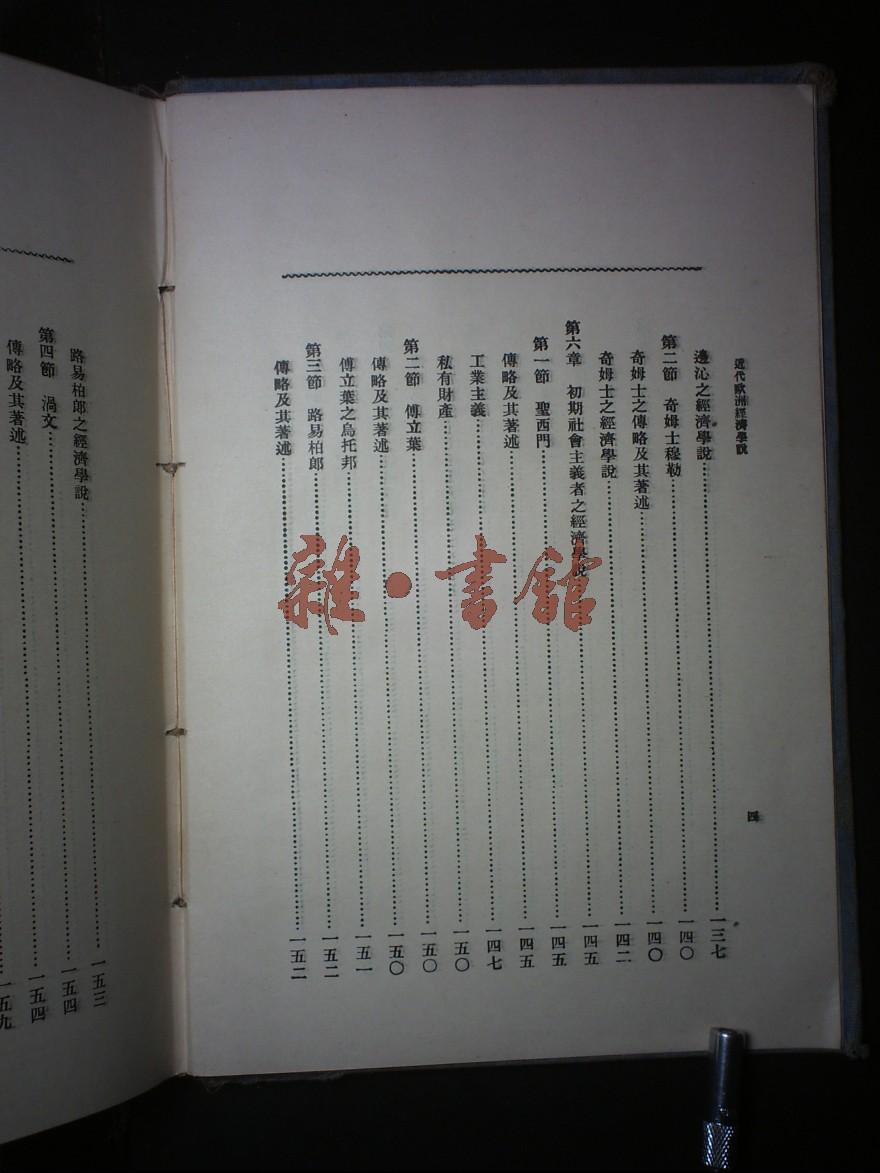 近代歐洲經濟學說
四
邊沁之經濟學說……一三七
第二節 奇姆士穆勒……一四〇
奇姆士之傳略及其著述……一四〇
奇姆士之經濟學說……一四二
第六章 初期社會主義者之經濟學說……一四五
第一節 聖西門……一四五
傳略及其著述……一四五
工業主義……一四七
私有財產……一五〇
第二節 傅立葉……一五〇
傳略及其著述……一五〇
傅立葉之烏托邦……一五一
第三節 路易柏郎……一五二
傳略及其著述……一五二
路易柏郎之經濟學說……一五三
第四節 渦文……一五四
傳略及其著述……一五四
一五九
雜·書館